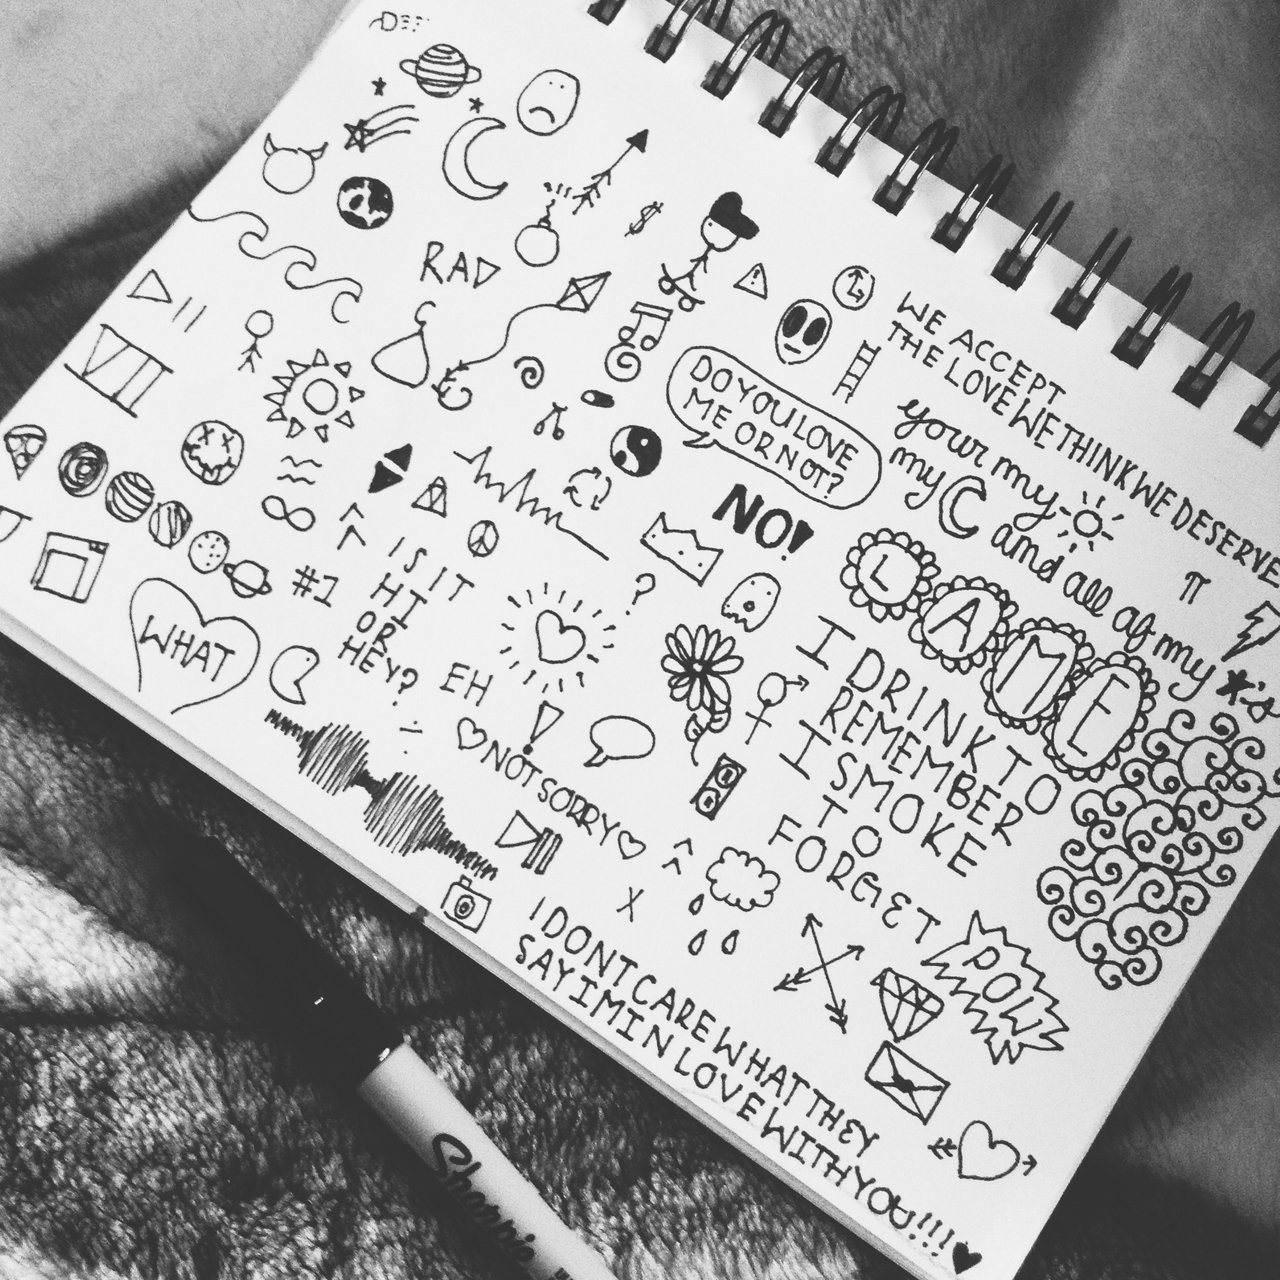 RAD
$
WE ACCEPT
THE LOVE WE THINK WE DESERVE
DO YOU LOVE
ME OR NOT?
your my
my
and all of my
*'s
NO!
π
VII
LAME
#1
IS IT
HI
OR
HEY?
?
WHAT
EH
!
÷
♡NOT SORRY♡
I DRINK TO
REMEMBER
I SMOKE
TO
FORGET
X
POW
I DONT CARE WHAT THEY
SAY IM IN LOVE WITH YOU!!!!♥
Sharpie